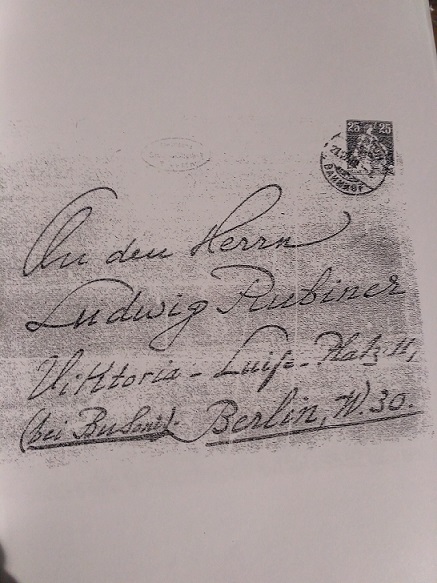 25 25
BAHNHOF
An den Herrn
Ludwig Rubiner
Viktoria - Luise - Platz 11,
(bei Busoni). Berlin, W. 30.